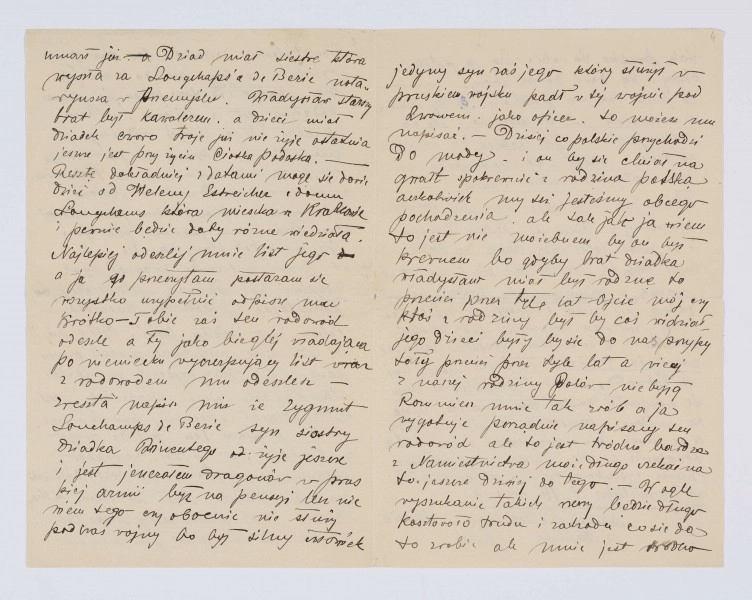 umarł już — a Dziad miał siostrę która
wyszła za Longchamps'a de Berie nota-
ryusza w Przemyślu. Władysław starszy
brat był kawalerem. a dzieci miał
dziadek czworo troje już nie żyje ostatnia
jeszcze jest przy życiu Ciotka
Resztę dokładniej i datami mogę się dowie
dzieć od Heleny Estreicher z domu
Longchams która mieszka w Krakowie
i pewnie będzie daty różne wiedziała.
Najlepiej odeszlij mnie list jego
a ja go przeczytam postaram się
wszystko wypełnić odpiszę mu
krótko — Tobie zaś ten rodowód
odeszlę a Ty jako bieglej władająca
po niemiecku wyczerpujący list
z rodowodem mu odeszlesz —
zresztą napisz mu że Zygmunt
Longchamps de Berie syn siostry
dziadka Wincentego żyje jeszcze
i jest jenerałem dragonów w prus
kiej armii był na pensyi lecz nie
wiem tego czy obecnie nie służy
podczas wojny bo był silny człowiek
4
jedyny syn zaś jego który służył w
pruskiem wojsku padł w tej wojnie pod
Lwowem. jako oficer. to możesz mu
napisać. — Dzisiaj co polskie przychodzi
Do mody. i on by się chciał na
gwałt spokrewnić z rodziną polską
aczkolwiek my też jesteśmy obcego
pochodzenia. ale tak jak ja wiem
to jest nie możebnem by on był
krewnem bo gdyby brat dziadka
Władysław miał być rodzinę to
przecież przez tyle lat Ojciec mój czy
ktoś z rodziny był by coś widział
jego dzieci były by się do nas
przecież przez tyle lat a więcej
z naszej rodziny Polów nie było
Rozumiesz mnie tak zrób a ja
wygotuję porządnie napisany ten
rodowód ale to jest trudne bardzo
z Namiestnictwa może długo czekać na
to jeszcze dzisiaj do tego. — W ogóle
wyszukanie takich rzeczy będzie długo
kosztowało trudu i zachodu co się da
to zrobię ale mnie jest